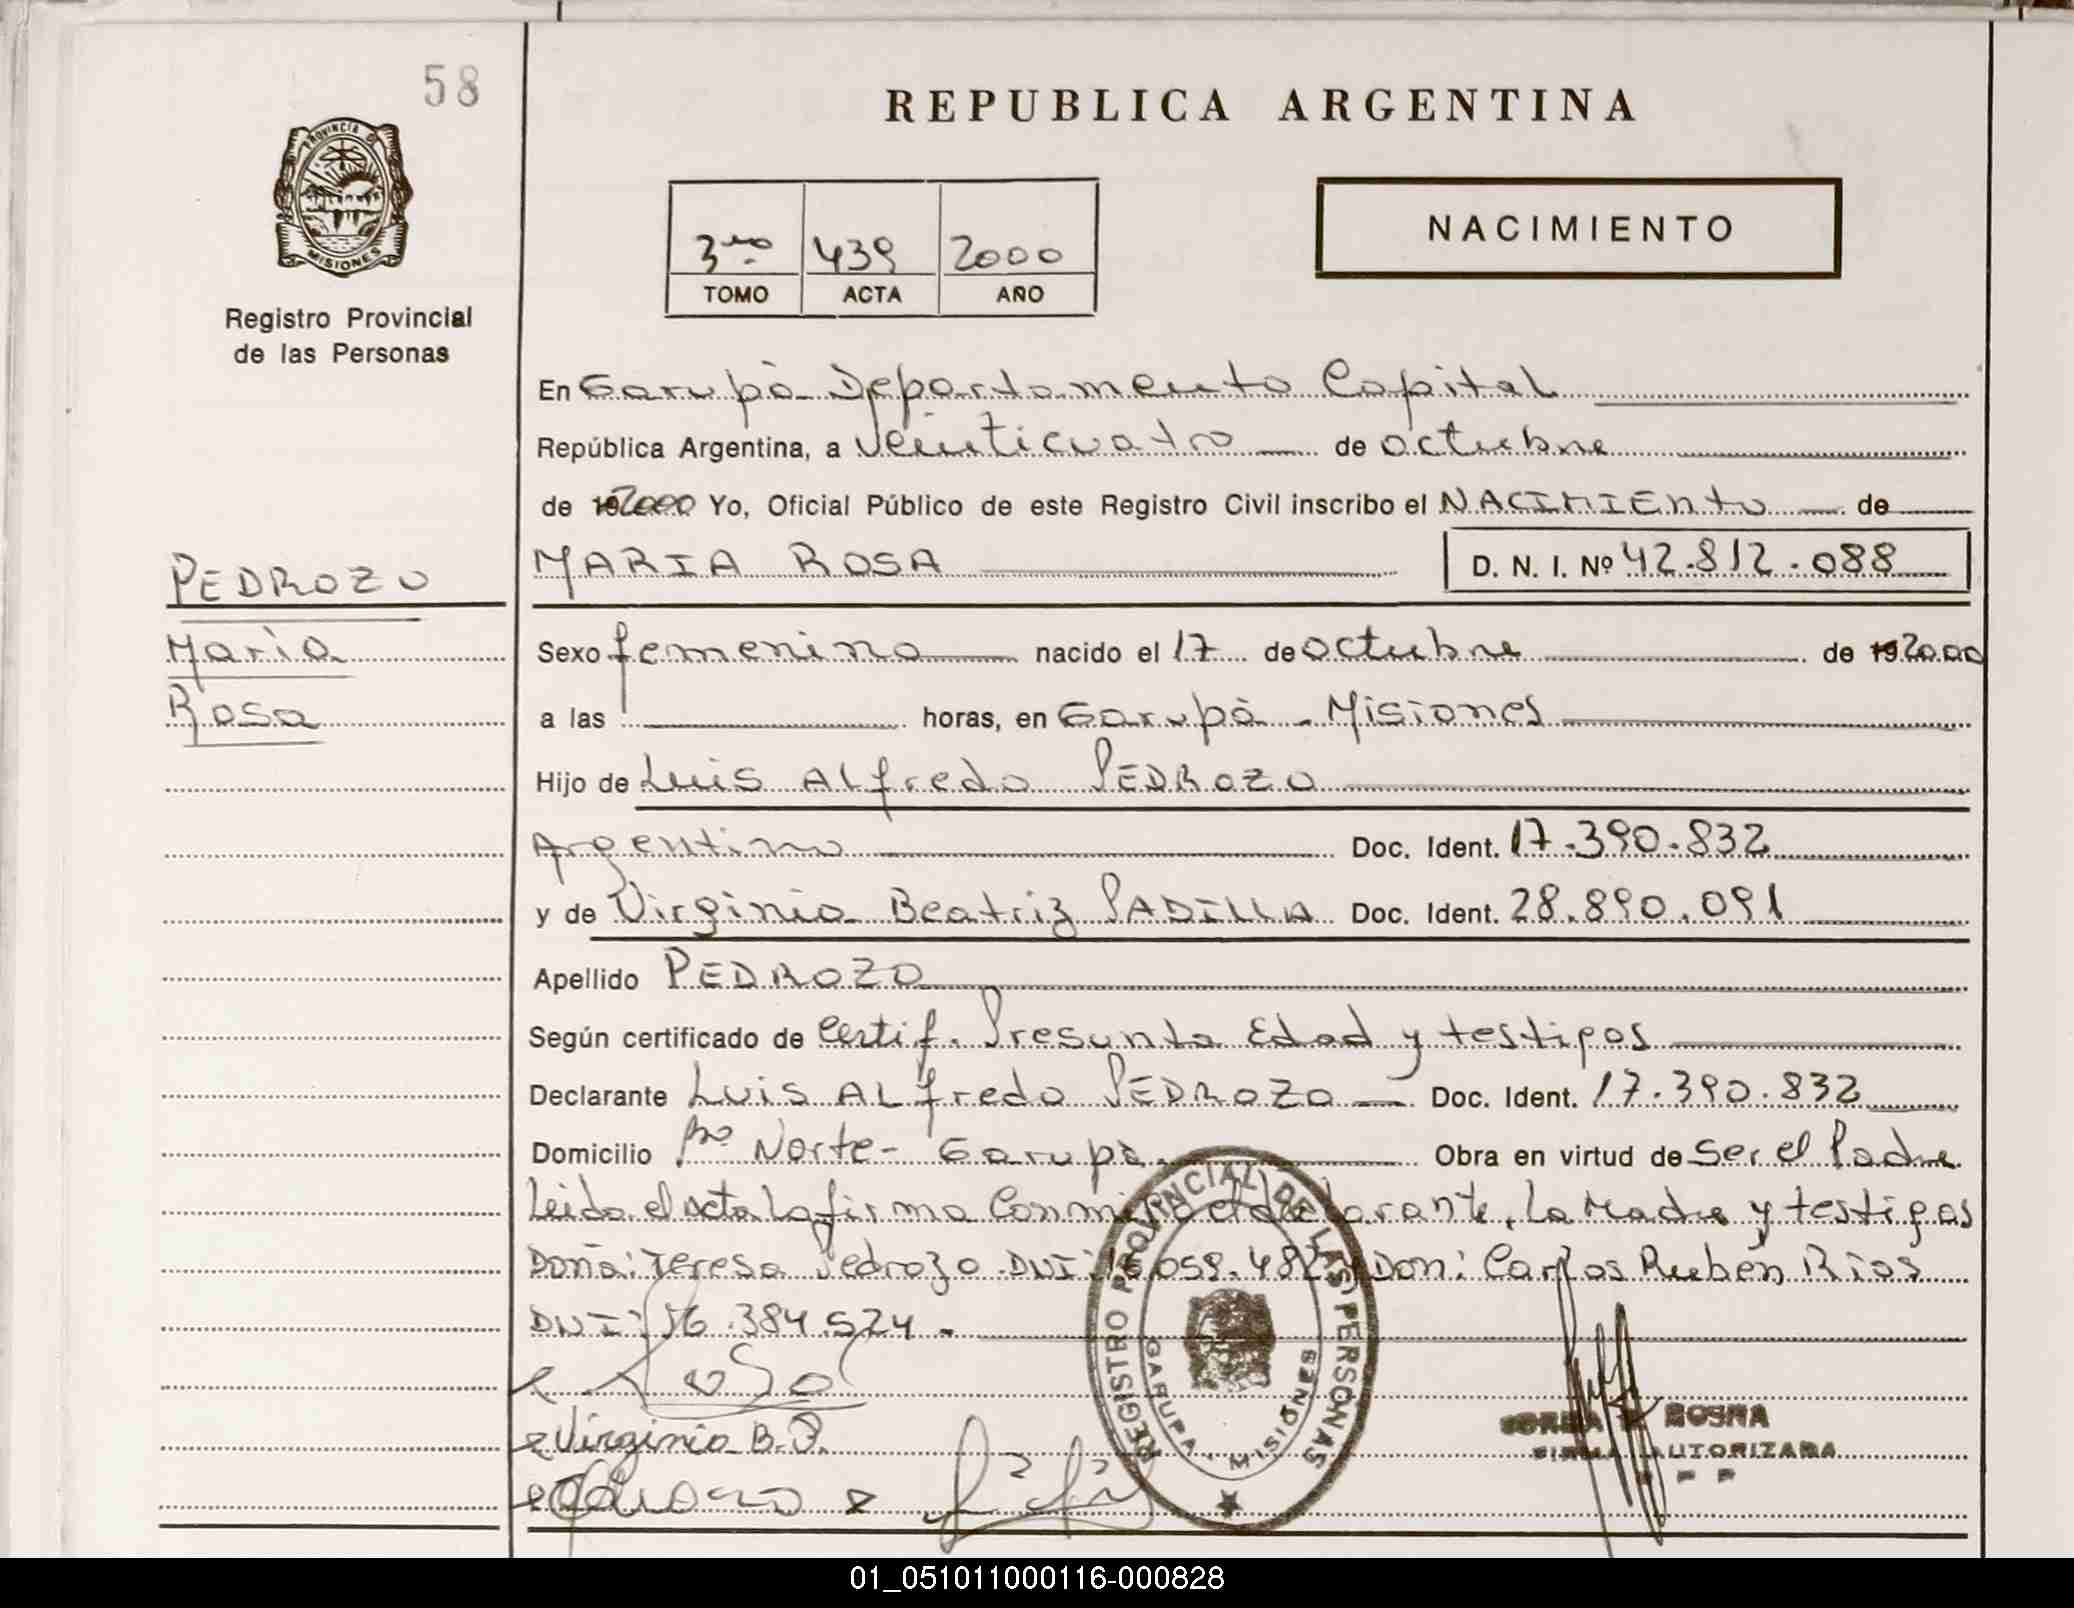 58
REPUBLICA ARGENTINA
PROVINCIA D
MISIONES
Registro Provincial
de las Personas
NACIMIENTO
3ro 439 2000
TOMO ACTA AÑO
En Garupà Departamento Capital
República Argentina, a veinticuatro de octubre
de 192000 Yo, Oficial Público de este Registro Civil inscribo el NACIMIENto de
PEDROZO
MARIA ROSA
D. N. I. Nº 42.812.088
Maria
Sexo femenino nacido el 17 de octubre de 192000
Rosa
a las horas, en Garupà - Misiones
Hijo de Luis ALfredo PEDROZO
Argentino Doc. Ident. 17.390.832
y de Virginia Beatriz PADILLA Doc. Ident. 28.890.091
Apellido PEDROZO
Según certificado de Certif. Presunta Edad y testigos
Declarante Luis ALfredo PEDROZO Doc. Ident. 17.390.832
Domicilio Bro Norte - Garupà. Obra en virtud de ser el Padre
Leida el acta La firma Conmigo el declarante, La Madre y testigos
Doña: Teresa Pedrozo DNI: 059.48 Don: Carlos Rubén Rios
DNI: 16.384.524.
Virginia B. P.
REGISTRO PROVINCIAL DE LAS PERSONAS
GARUPA - MISIONES
FIRMA AUTORIZADA
01_051011000116-000828